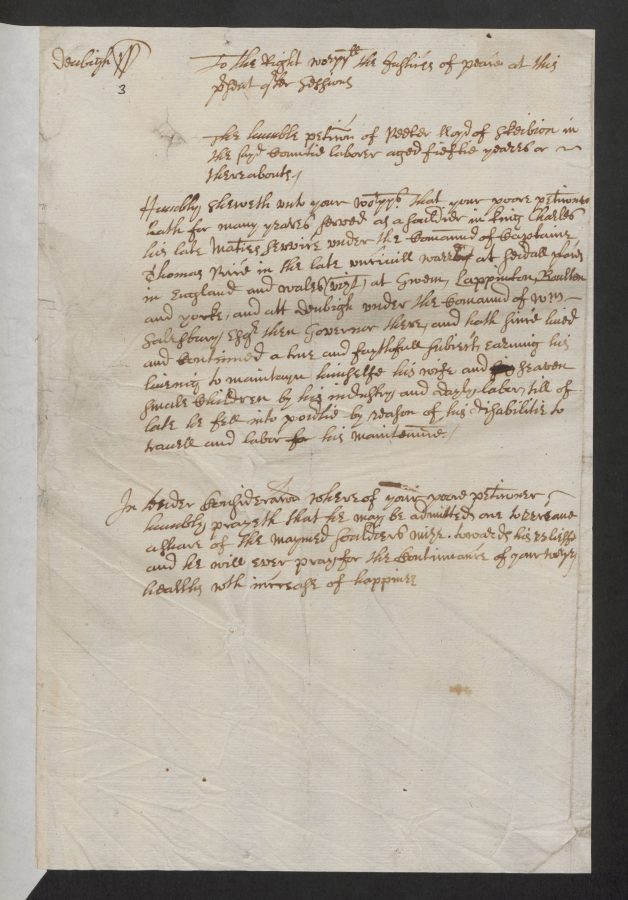 Denbigh ss
3
To the Right worpp:ll the Justices of peace at this
p'sent q'ter Sessions
The humble petic̃on of Peeter lloyd of Skeibion in
the sayd Countie laborer aged fieftie yeares or
thereabouts,
Humbly sheweth unto your worpps that your poore petitioner
hath for many yeares served as a souldier in king Charles
his late Ma:ties service under the Com̃and of Captaine
Thomas Price in the late uncivill warrs at sev'all places
in England and wales (vizt) at Gwem, Lappinton, Routten
and yorke, and att Denbigh under the Com̃aund of Wm
Salesbury Esqr then Governor there, and hath since lived
and Continued a true and faythfull subiect, earning his
liveing to maintayn himselfe his wife and seaven
smale Children by his industry and dayly labor, till of
late he fell into povertie by reason of his disabilitie to
travell and labor for his maintenance./
In tender Considerac̃on whereof your poore petitioner
humbly prayeth that he may be admitted one to receave
a share of the maymed souldiers mize towards his relieffe
and he will ever pray for the Continuance of your worpps
health wth increase of happines